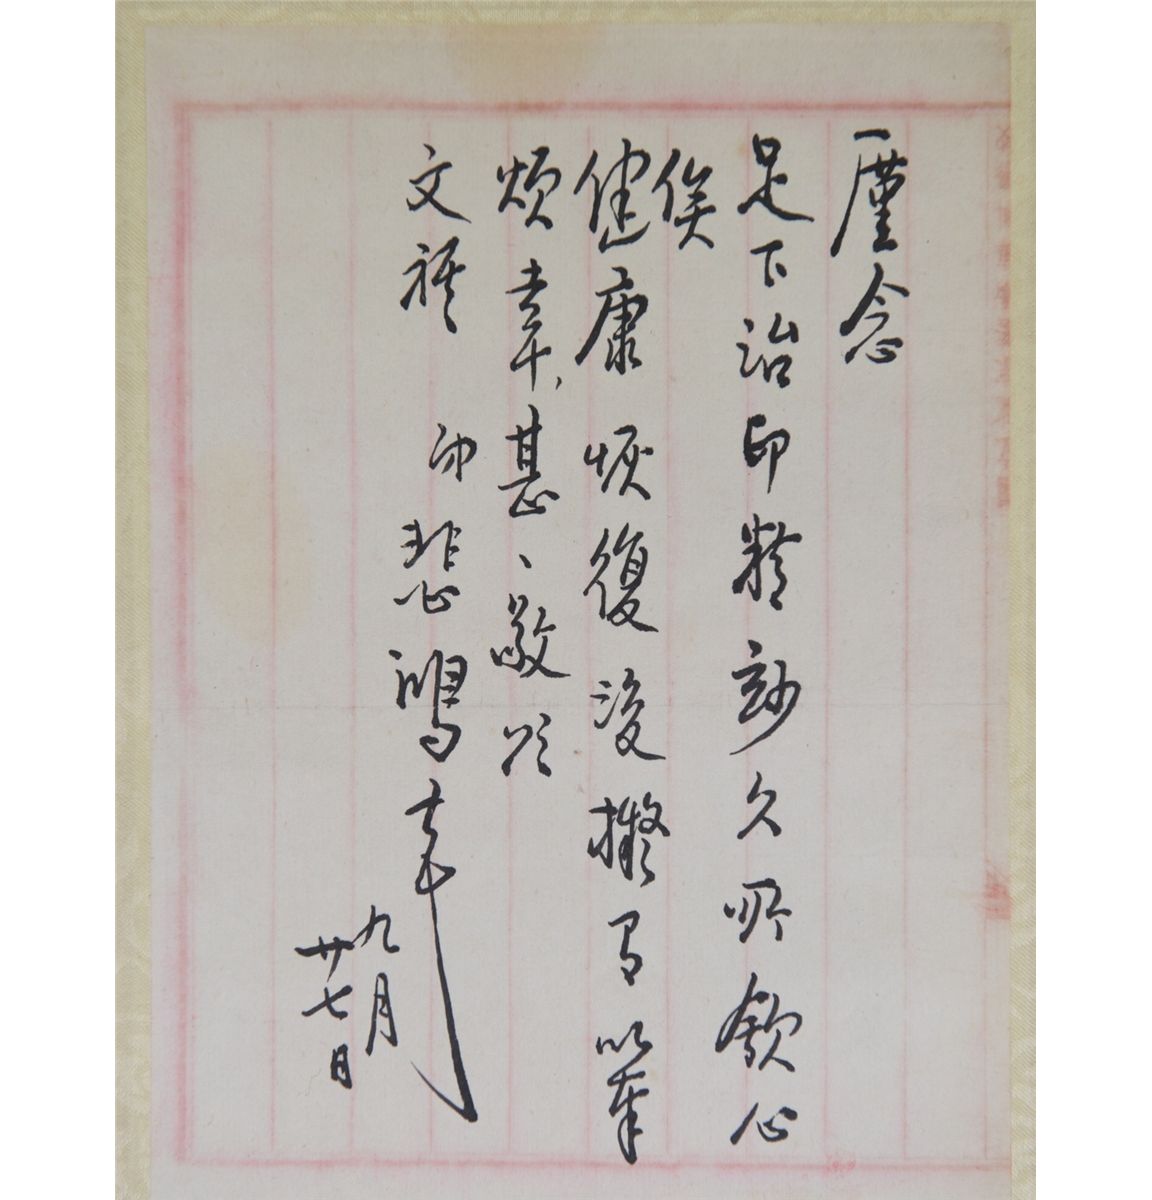 廑念
足下治印精妙久所欽心
俟
健康恢復後擬有以奉
煩幸甚、敬頌
文祺 弟悲鴻
九月
廿七日